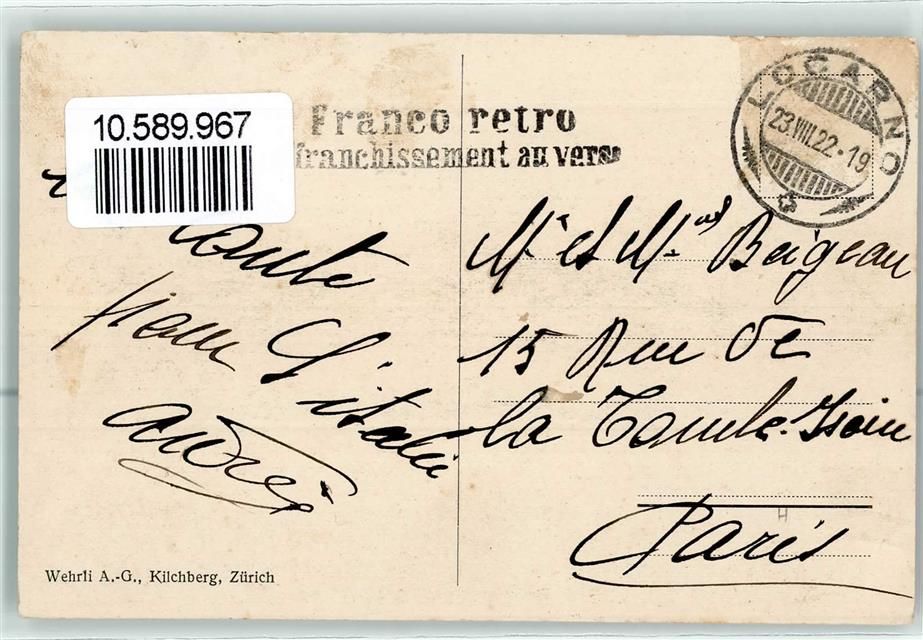 10.589.967
Franco retro
franchissement au verso
LOCARNO
23.VIII.22-19
route
pour L'italie
André
Mr et Mme Beigeau
15 Rue De
la Tombe-Issoire
Paris
Wehrli A.-G., Kilchberg, Zürich